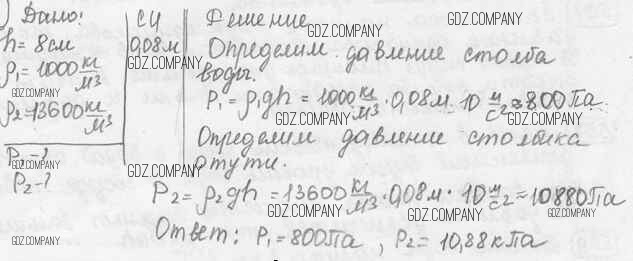 Дано:
h = 8 см
ρ₁ = 1000 кг/м³
ρ₂ = 13600 кг/м³
P₁ - ?
P₂ - ?
СИ
0,08 м
Решение
Определим давление столба
воды.
P₁ = ρ₁gh = 1000 кг/м³ · 0,08 м · 10 м/с² ≈ 800 Па
Определим давление столбика
ртути.
P₂ = ρ₂gh = 13600 кг/м³ · 0,08 м · 10 м/с² ≈ 10880 Па
Ответ: P₁ = 800 Па, P₂ = 10,88 кПа
GDZ.COMPANY
GDZ.COMPANY
GDZ.COMPANY
GDZ.COMPANY
GDZ.COMPANY
GDZ.COMPANY
GDZ.COMPANY
GDZ.COMPANY
GDZ.COMPANY
GDZ.COMPANY
GDZ.COMPANY
GDZ.COMPANY
GDZ.COMPANY